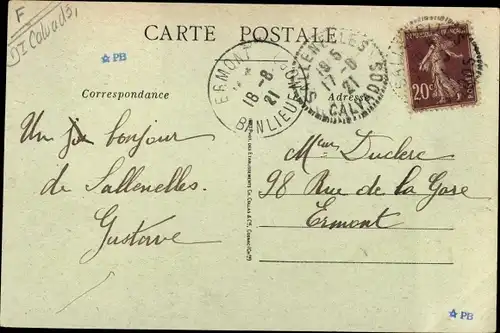 F
Dt Calvados,
CARTE POSTALE
☆ PB
ERMONT
18-8
21
BANLIEUE
SALLENELLES
18 5
17-8
21
CALVADOS
20c
Correspondance
Adresse
Un bonjour
de Sallenelles
Gustave
Mme Duclerc
98 Rue de la Gare
Ermont
☆ PB